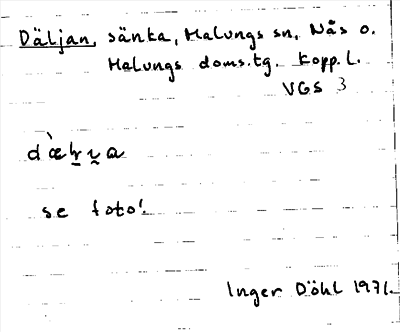 Däljan, sänka, Malungs sn, Nås o.
Malungs doms.tg. Kopp. L.
VGS 3
se foto!
Inger Döhl 1971.